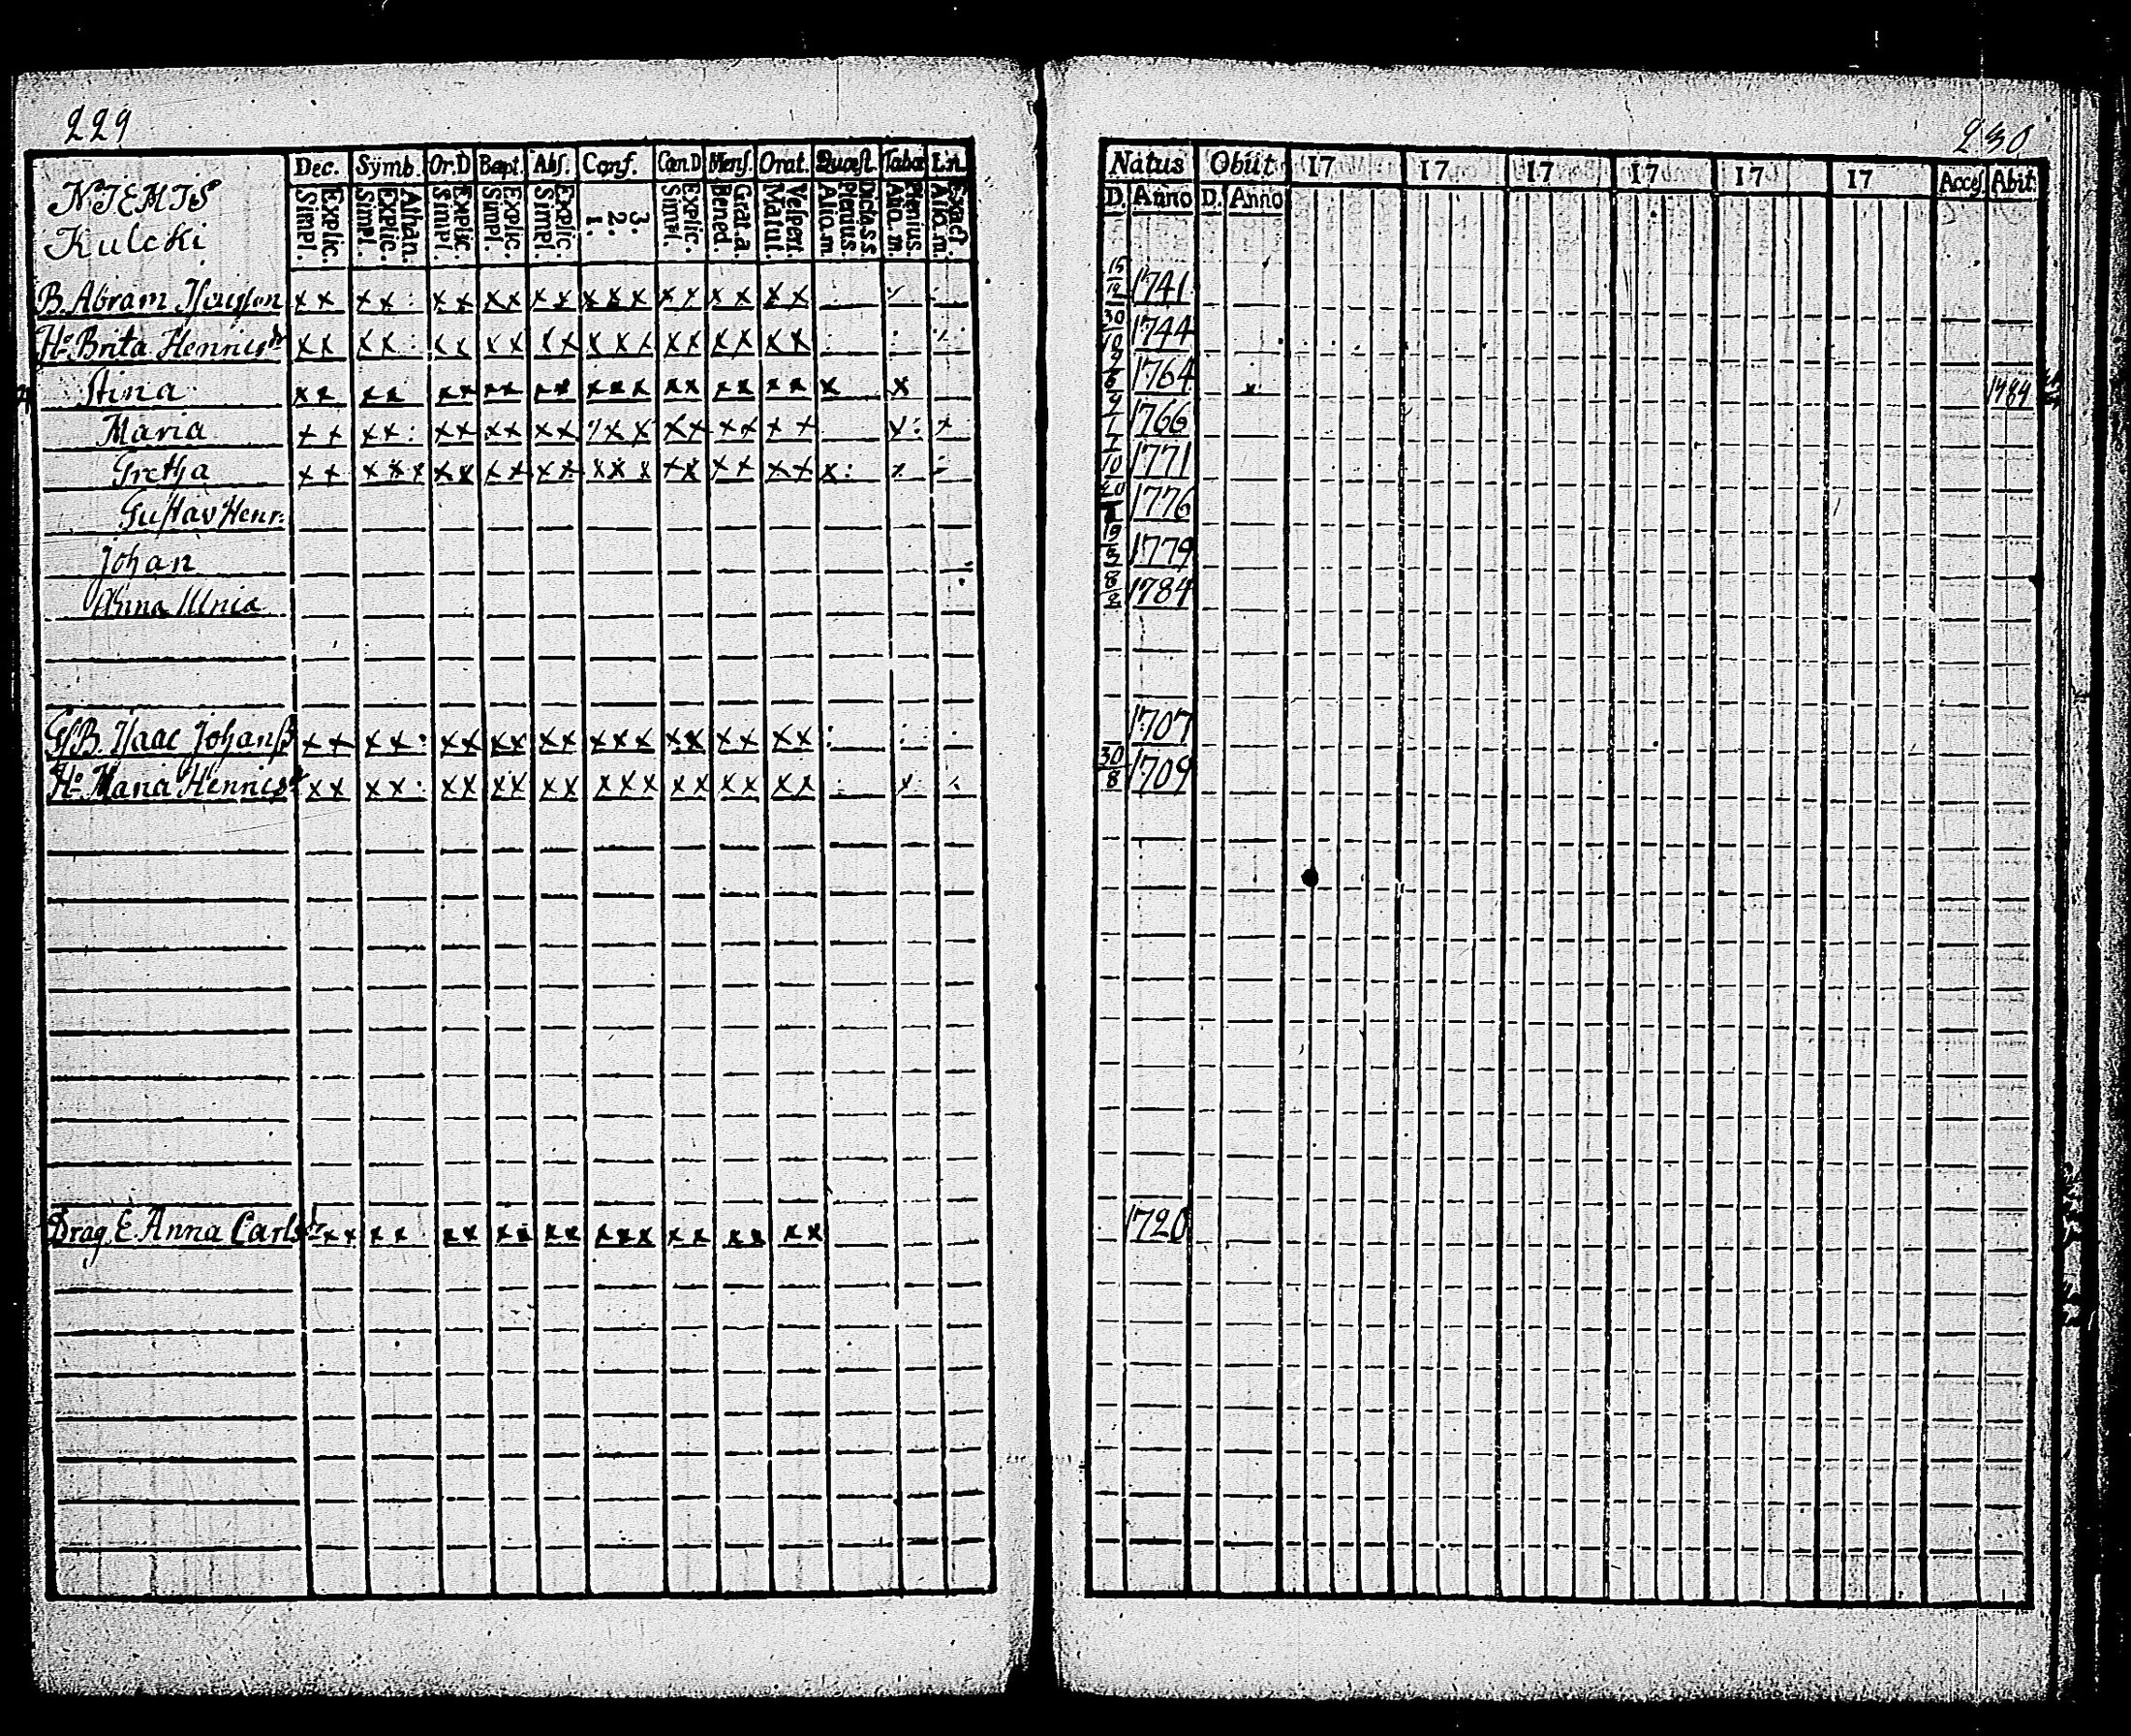 229
NIEMIS
Kulcki
Dec. Symb. Or.D Bapt. Abs. Conf. Cœn.D Mens. Orat. Quæst. Tabæ Lit.
Simpl. Explic. Simpl. Explic. Athan. Simpl. Explic. Simpl. Explic. Simpl. Explic. 1. 2. 3. Simpl. Explic. Bened. Grat. a. Matut. Vespert. Alio. m. Plenius Dicta. s. s. Alio. m. Plenius. Alio. m. Exact
B. Abram x x x x : x x x x x x x x x x x x x x x
H:o Brita Henricsdr x x x x : x x x x x x x x x x x x x x x
Stina x x x x x x x x x x x x x x x x x x x x x
Maria x x x x : x x x x x x x x x x x x x x x
Gretha x x x x x x x x x x x x x x x x x x x x x :
Gustav Henr:
Johan
Anna
B. Isaac Johanss x x x x : x x x x x x x x x x x x x x x
H:o Maria Henricsd x x x x : x x x x x x x x x x x x x x x
Drag. E. Anna Carlsd x x x x x x x x x x x x x x x x x x x
230
Natus Obiit 17 17 17 17 17 17 Acces. Abit
D. Anno D. Anno
15/12 1741
30/10 1744
1764 x 1784
9/1 1766
10 1771
1776
19/5 1779
8/2 1784
1707
30/8 1709
1720